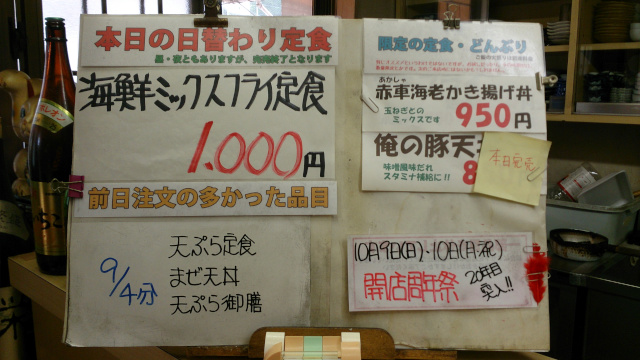 本日の日替わり定食
昼・夜ともありますが、売切終了となります
海鮮ミックスフライ定食
1.000円
前日注文の多かった品目
9/4分
天ぷら定食
まぜ天丼
天ぷら御膳
限定の定食・どんぶり
あかしゃ
赤車海老かき揚げ丼
玉ねぎとの
ミックスです
950円
俺の豚天
味噌風味だれ
スタミナ補給に!!
8
本日完売
10月9日(日)・10日(月・祝)
開店周年祭
2年目
突入!!